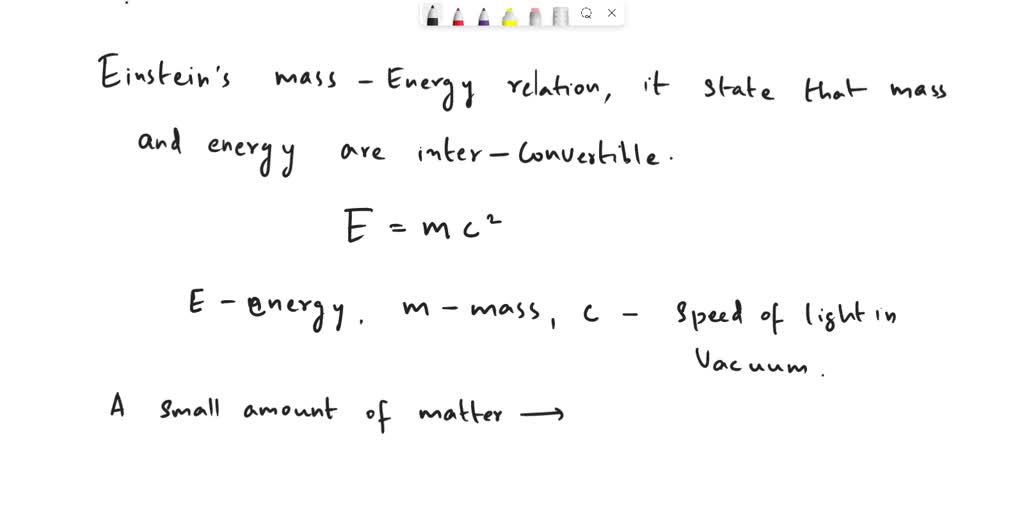 Einstein's mass - Energy relation, it state that mass
and energy are inter-convertible.
E = mc²
E - energy, m - mass, c - speed of light in
Vacuum.
A small amount of matter →